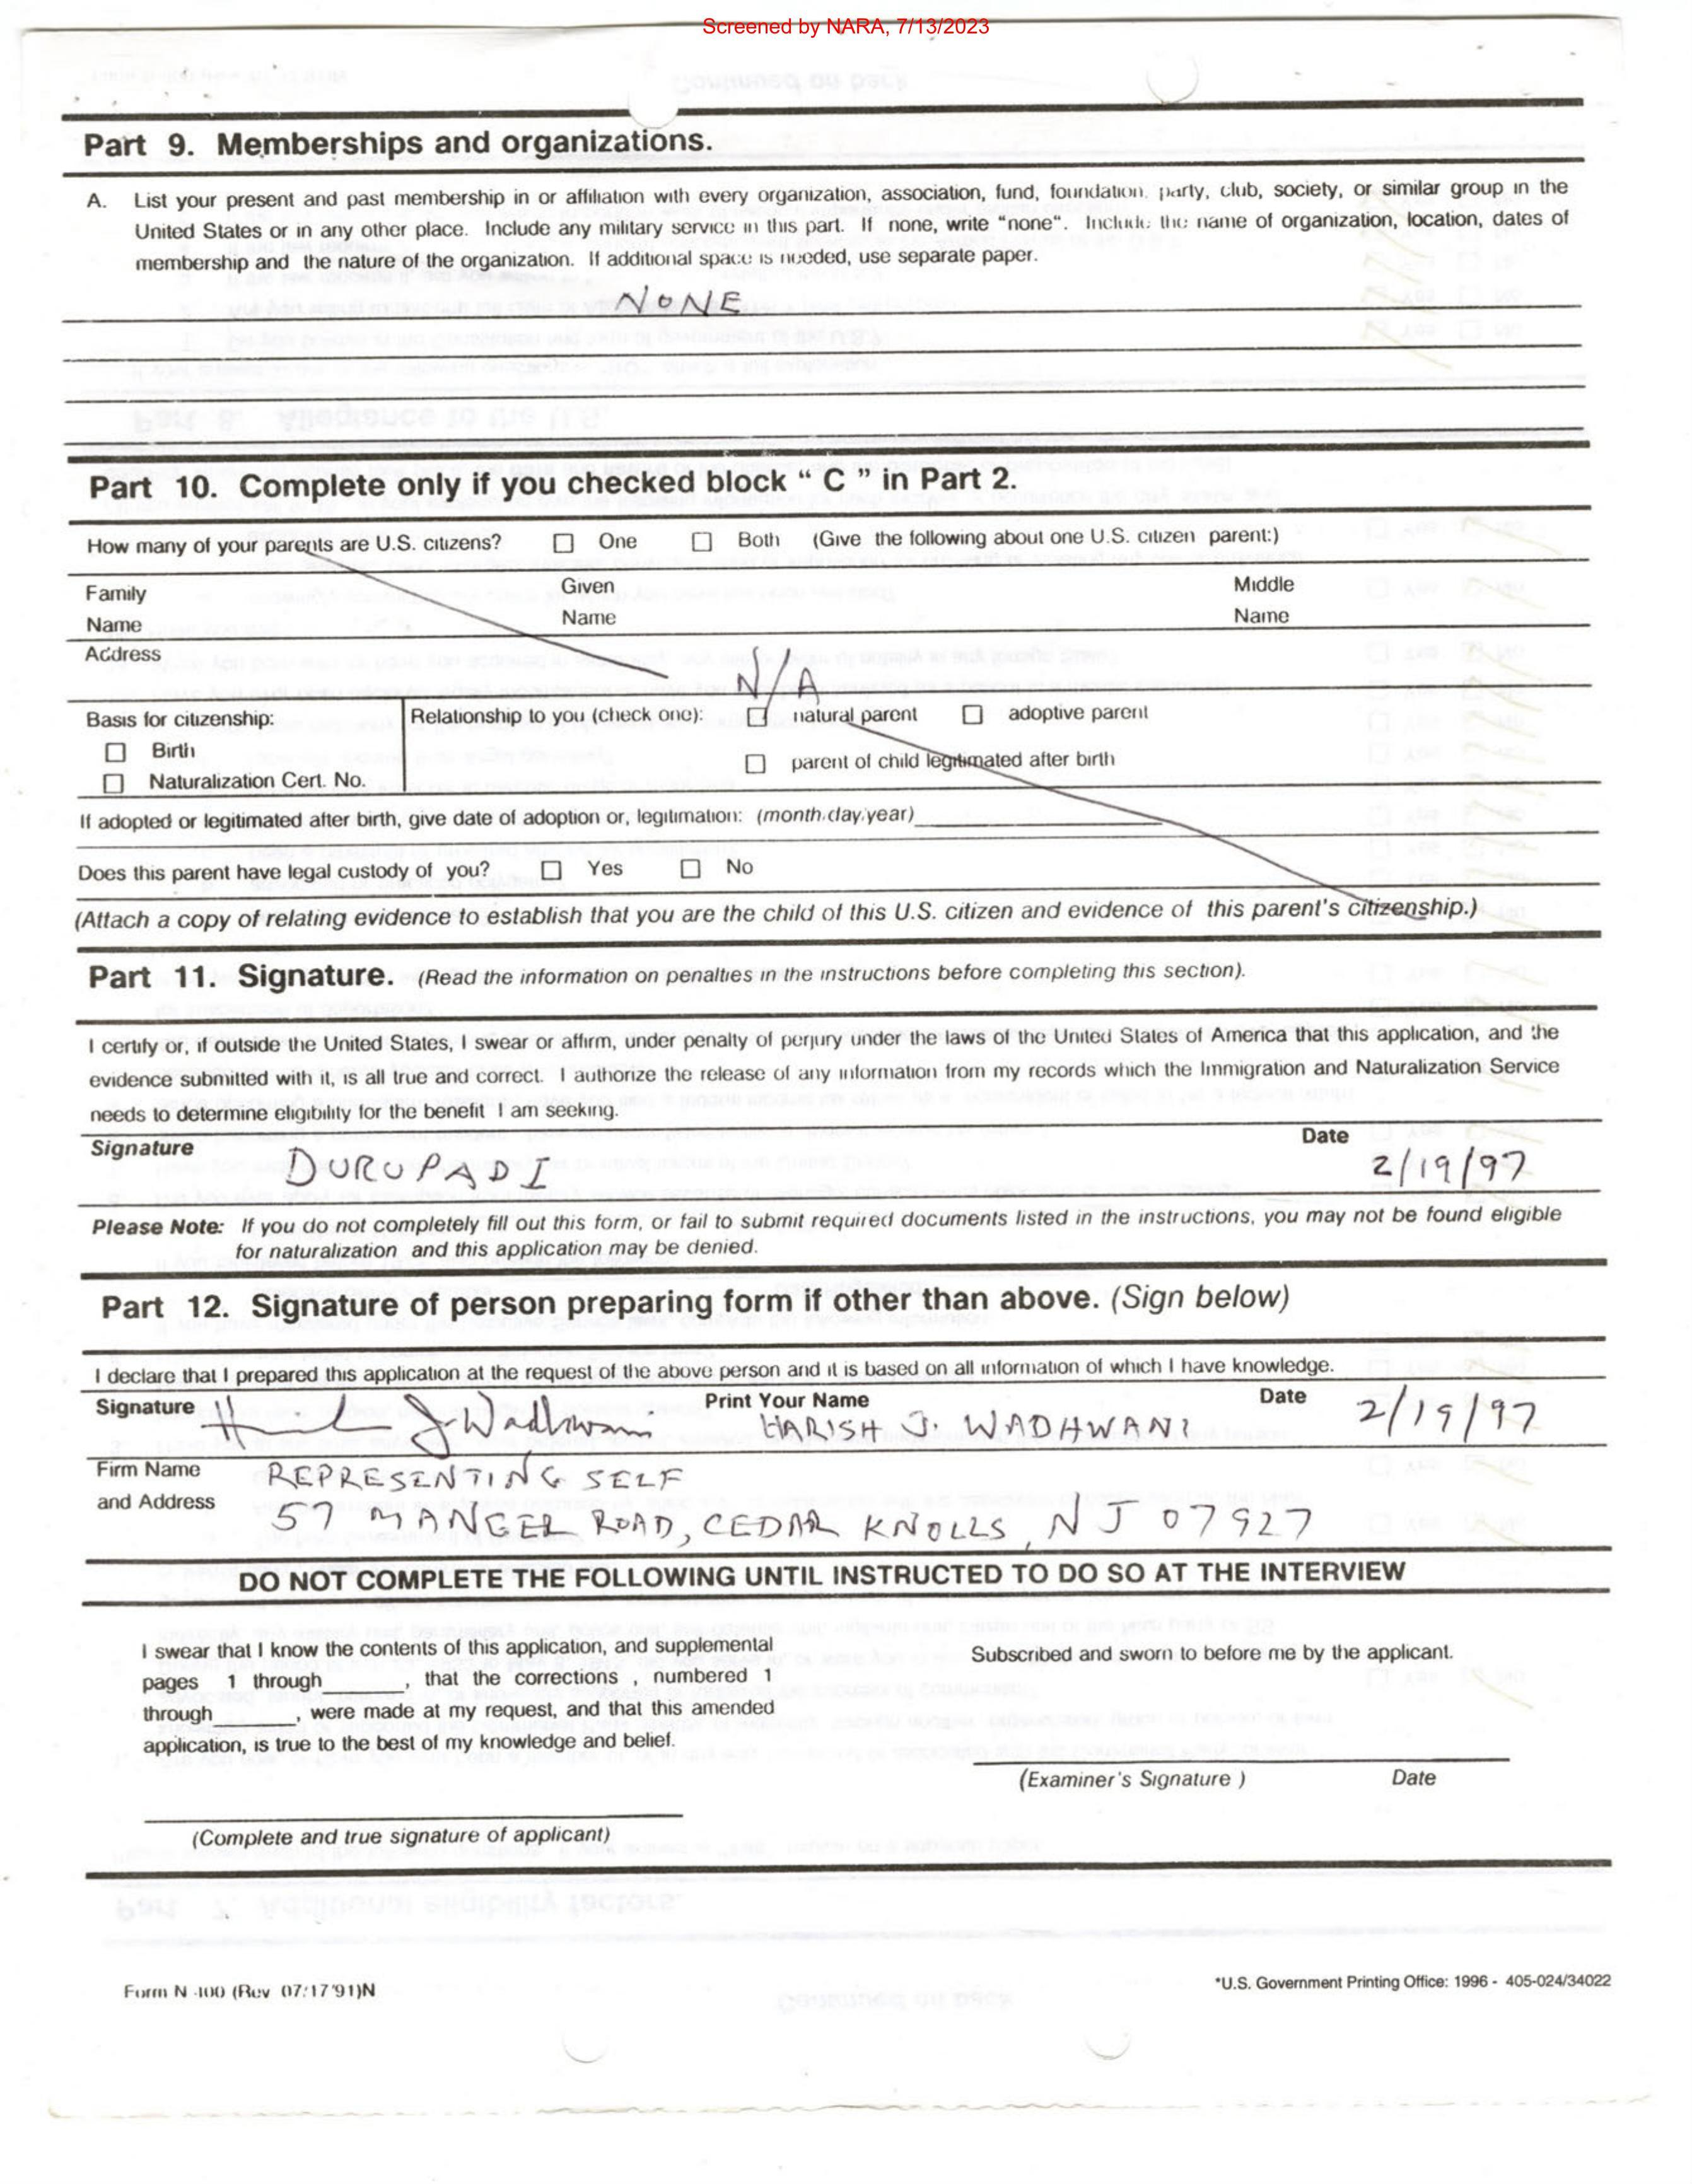 Screened by NARA, 7/13/2023
Part 9. Memberships and organizations.
A. List your present and past membership in or affiliation with every organization, association, fund, foundation, party, club, society, or similar group in the
United States or in any other place. Include any military service in this part. If none, write "none". Include the name of organization, location, dates of
membership and the nature of the organization. If additional space is needed, use separate paper.
NONE
Part 10. Complete only if you checked block " C " in Part 2.
How many of your parents are U.S. citizens? ☐ One ☐ Both (Give the following about one U.S. citizen parent:)
Family Given Middle
Name Name Name
Address
N/A
Basis for citizenship: Relationship to you (check one): ☐ natural parent ☐ adoptive parent
☐ Birth
☐ parent of child legitimated after birth
☐ Naturalization Cert. No.
If adopted or legitimated after birth, give date of adoption or, legitimation: (month/day/year)
Does this parent have legal custody of you? ☐ Yes ☐ No
(Attach a copy of relating evidence to establish that you are the child of this U.S. citizen and evidence of this parent's citizenship.)
Part 11. Signature. (Read the information on penalties in the instructions before completing this section).
I certify or, if outside the United States, I swear or affirm, under penalty of perjury under the laws of the United States of America that this application, and the
evidence submitted with it, is all true and correct. I authorize the release of any information from my records which the Immigration and Naturalization Service
needs to determine eligibility for the benefit I am seeking.
Signature Date
DURUPADI 2/19/97
Please Note: If you do not completely fill out this form, or fail to submit required documents listed in the instructions, you may not be found eligible
for naturalization and this application may be denied.
Part 12. Signature of person preparing form if other than above. (Sign below)
I declare that I prepared this application at the request of the above person and it is based on all information of which I have knowledge.
Signature Print Your Name Date
Harish J. Wadhwani HARISH J. WADHWANI 2/19/97
Firm Name REPRESENTING SELF
and Address 57 MANGER ROAD, CEDAR KNOLLS, NJ 07927
DO NOT COMPLETE THE FOLLOWING UNTIL INSTRUCTED TO DO SO AT THE INTERVIEW
I swear that I know the contents of this application, and supplemental
pages 1 through______, that the corrections , numbered 1
through______, were made at my request, and that this amended
application, is true to the best of my knowledge and belief.
Subscribed and sworn to before me by the applicant.
(Examiner's Signature ) Date
(Complete and true signature of applicant)
Form N-400 (Rev 07/17/91)N
*U.S. Government Printing Office: 1996 - 405-024/34022